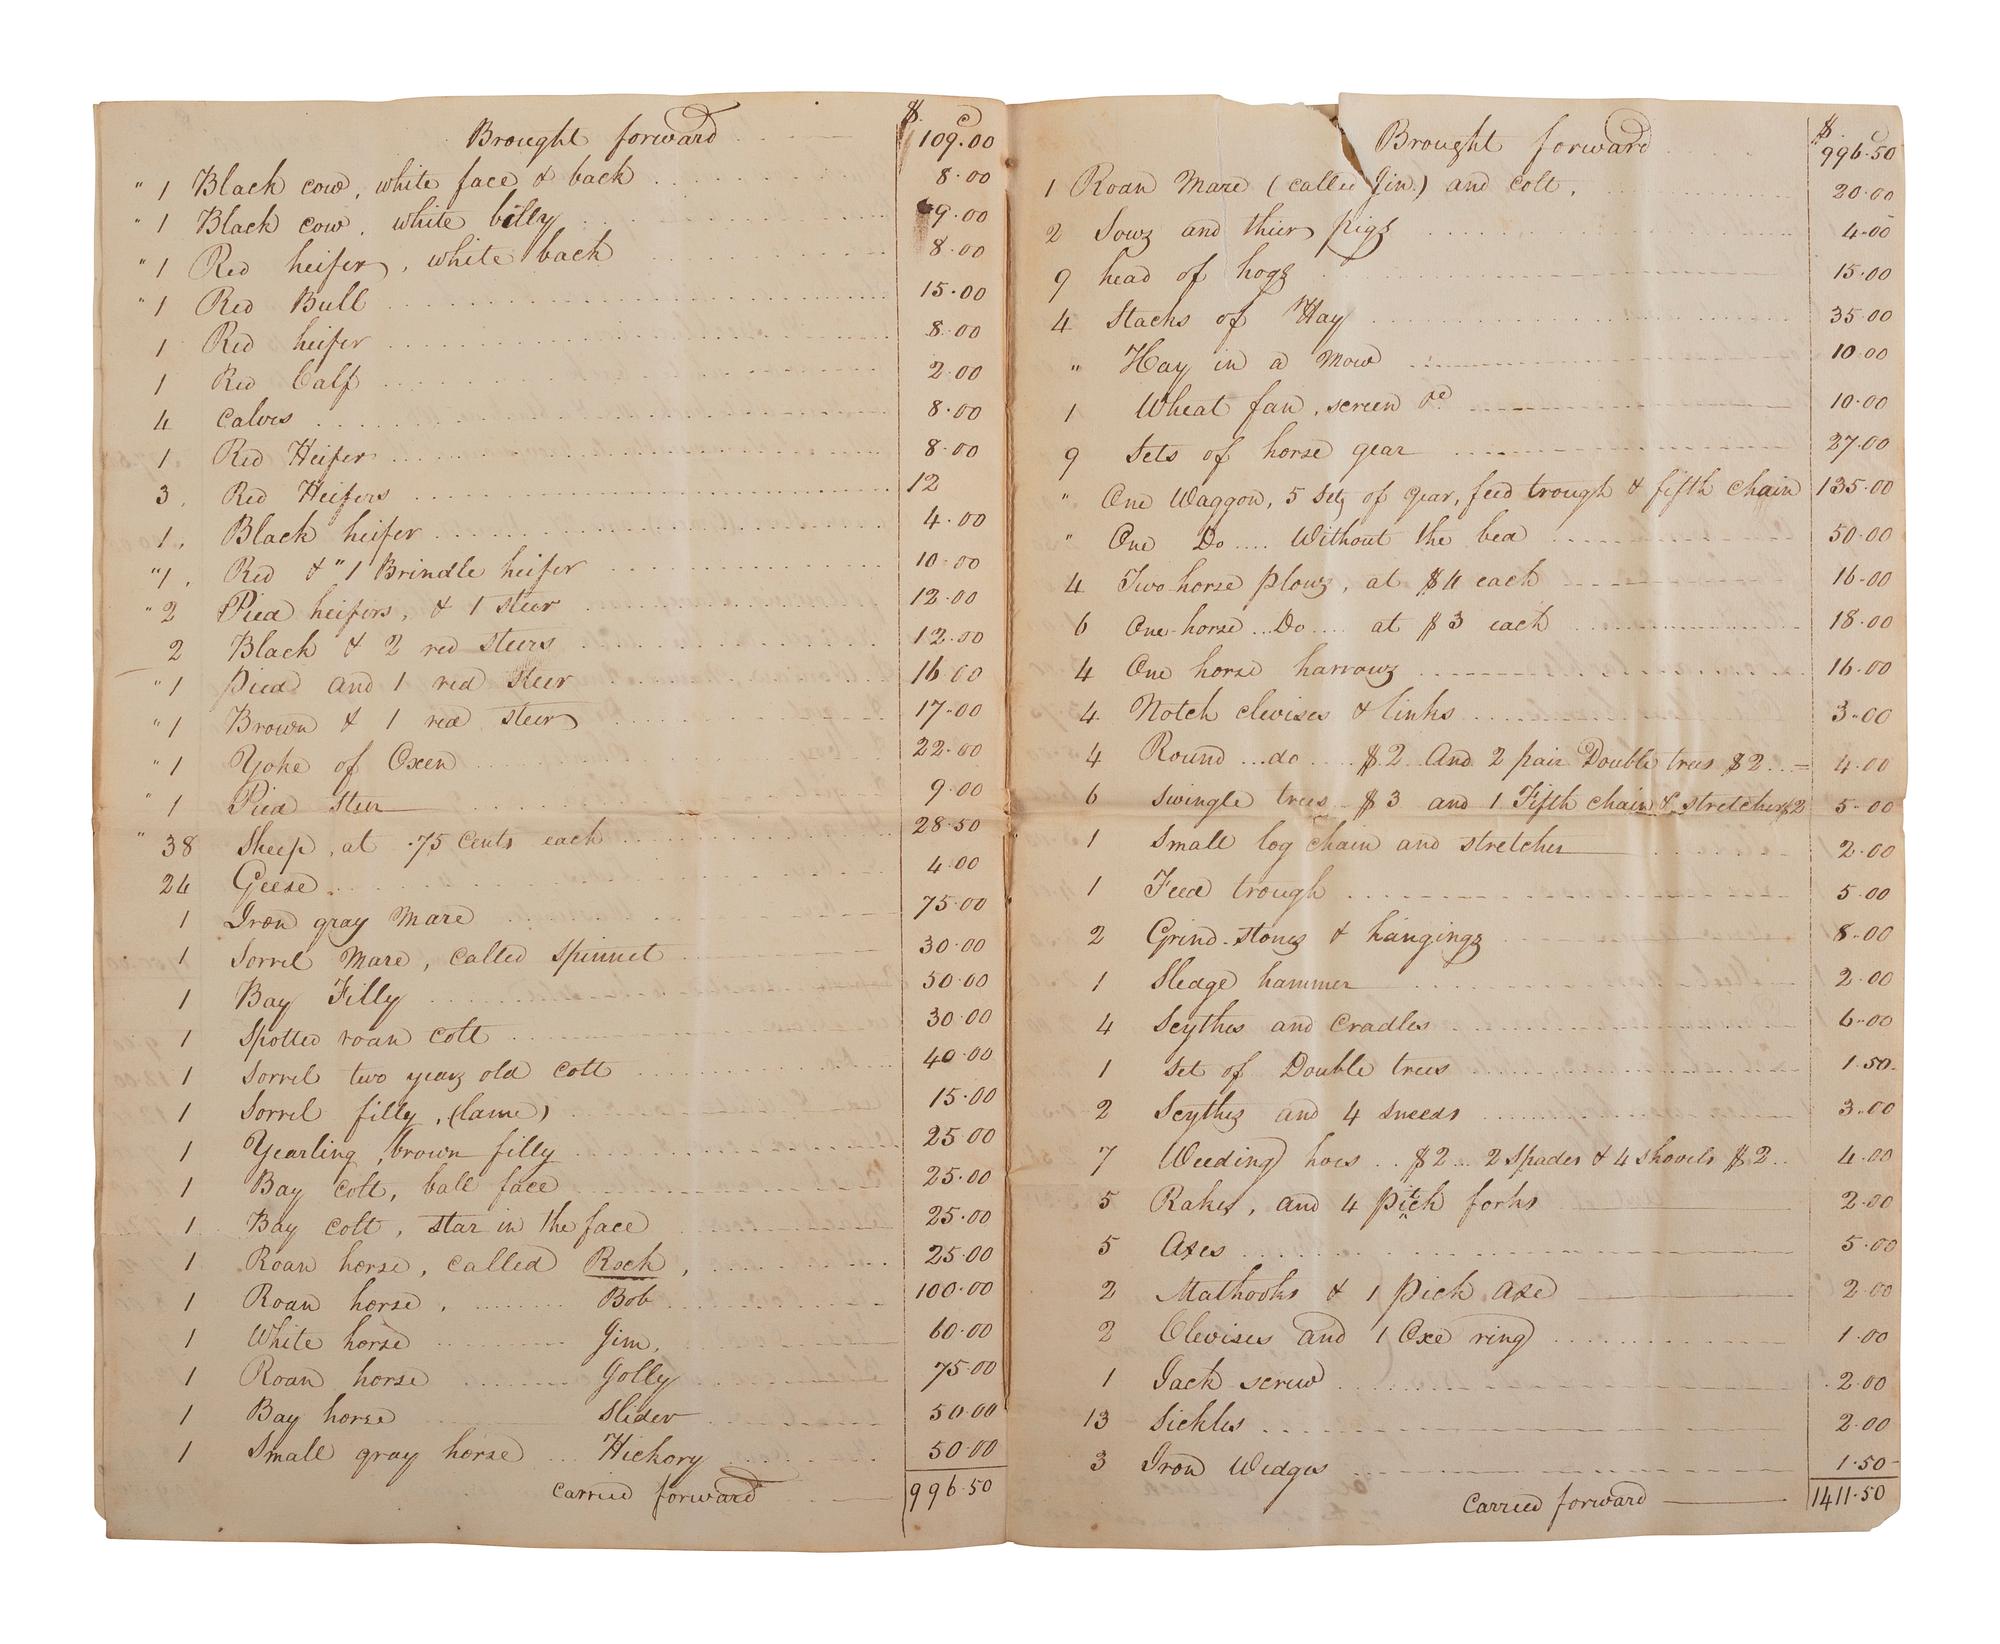 $ c
Brought forward 109.00
" 1 Black cow, white face & back 8.00
" 1 Black cow, white billy 9.00
" 1 Red heifer, white back 8.00
" 1 Red Bull 15.00
1 Red heifer 8.00
1 Red Calf 2.00
4 Calves 8.00
1 Red Heifer 8.00
3. Red Heifers 12
1. Black heifer 4.00
"1. Red & "1 Brindle heifer 10.00
"2 Pied heifers, & 1 steer 12.00
2 Black & 2 red steers 12.00
"1 Pied and 1 red steer 16.00
"1 Brown & 1 red steer 17.00
"1 Yoke of Oxen 22.00
" 1 Pied steer 9.00
" 38 Sheep, at .75 cents each 28.50
24 Geese 4.00
1 Iron gray Mare 75.00
1 Sorrel Mare, called Spinnet 30.00
1 Bay Filly 50.00
1 Spotted roan colt 30.00
1 Sorrel two years old colt 40.00
1 Sorrel filly, (lame) 15.00
1 Yearling, brown filly 25.00
1 Bay colt, ball face 25.00
1 Bay colt, star in the face 25.00
1 Roan horse, called Rock, 25.00
1 Roan horse, Bob 100.00
1 White horse Jim, 60.00
1 Roan horse Jolly 75.00
1 Bay horse Slider 50.00
1 Small gray horse Hickory 50.00
Carried forward 996.50
$ c
Brought forward 996.50
1 Roan Mare (called Jin) and colt, 20.00
2 Sows and thier pigs 4.00
9 head of hogs 15.00
4 Stacks of Hay 35.00
" Hay in a Mow 10.00
1 Wheat fan, screen &c 10.00
9 Sets of horse gear 27.00
" One Waggon, 5 sets of gear, feed trough & fifth chain 135.00
" One Do.... Without the bed 50.00
4 Two horse plows, at $4 each 16.00
6 One-horse ... Do .... at $3 each 18.00
4 One horse harrows 16.00
4 Notch clevises & links 3.00
4 Round ... do .... $2 And 2 pair Double trees $2 ... = 4.00
6 Swingle trees $3 and 1 Fifth chain & stretcher $2 5.00
1 Small log chain and stretcher 2.00
1 Feed trough 5.00
2 Grind-stones & hangings 8.00
1 Sledge hammer 2.00
4 Scythes and Cradles 6.00
1 Set of Double trees 1.50
2 Scythes and 4 sneeds 3.00
7 Weeding hoes .. $2 ... 2 Spades & 4 shovels $2.. 4.00
5 Rakes, and 4 pitch forks 2.00
5 Axes 5.00
2 Mathooks & 1 pick axe 2.00
2 Clevises and 1 Oxe ring 1.00
1 Jack screw 2.00
13 Sickles 2.00
3 Iron Wedges 1.50
Carried forward 1411.50